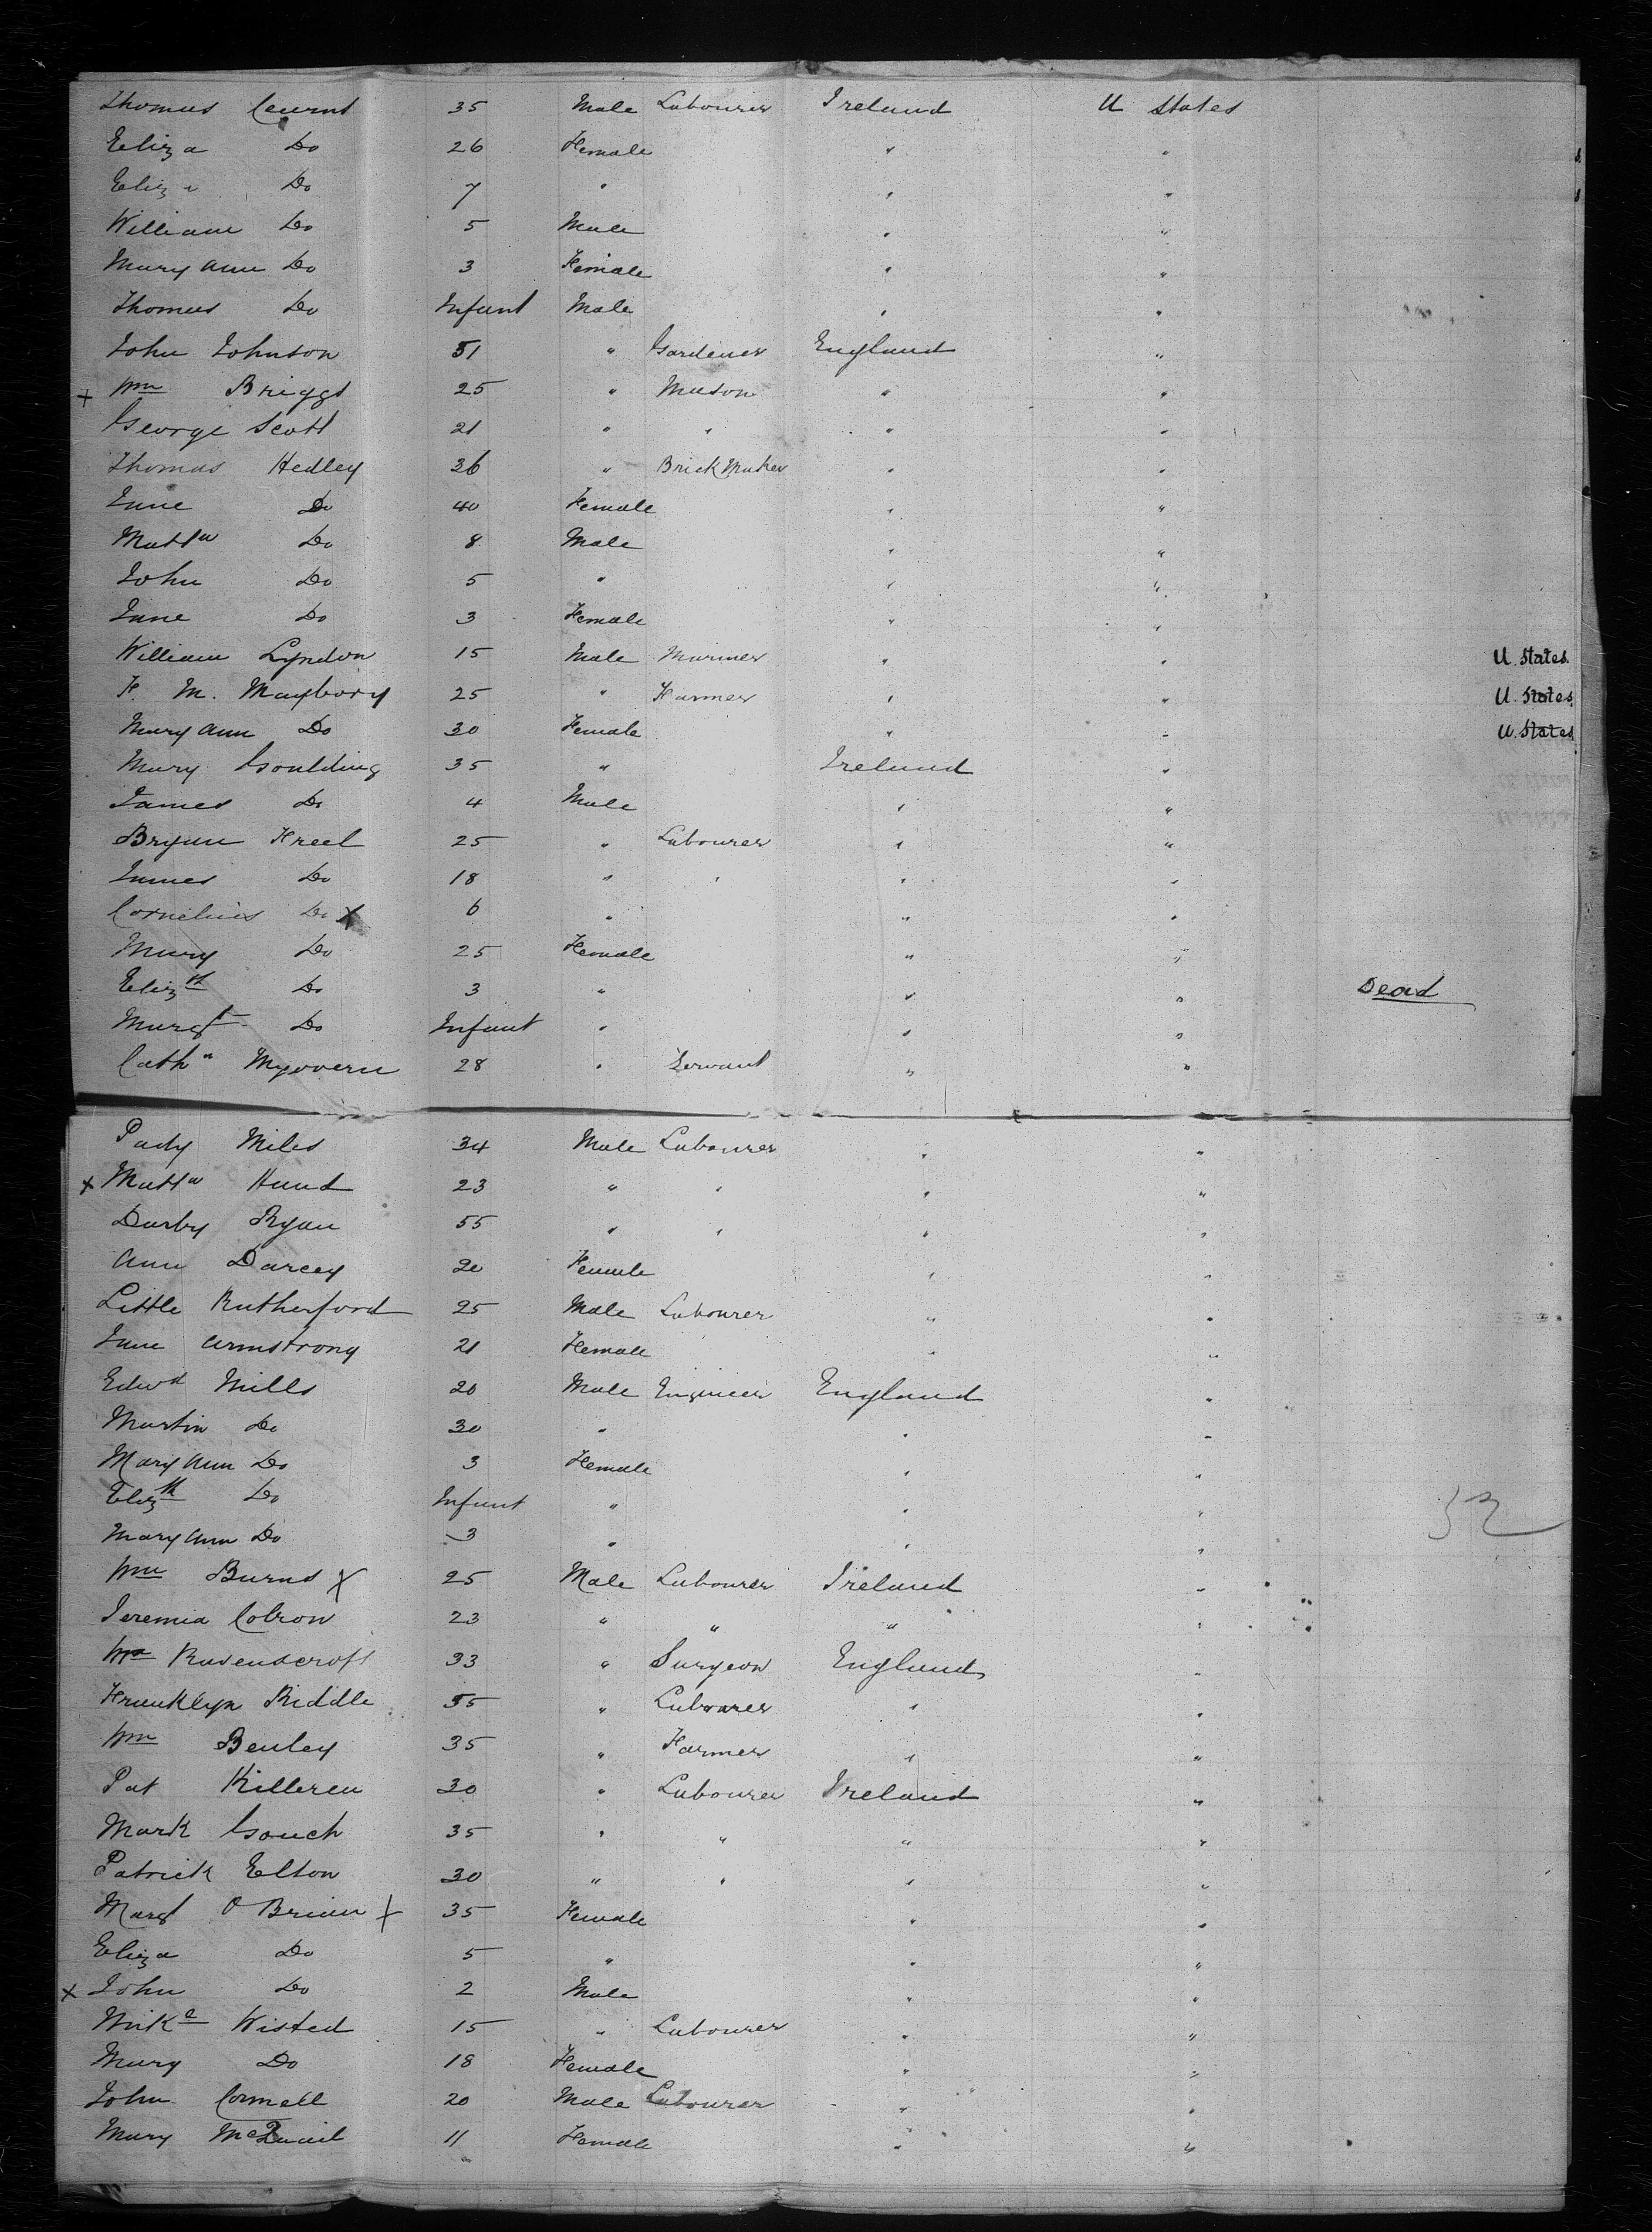 Thomas 35 Male Labourer Ireland U States
Eliza Do 26 Female " "
Eliza Do 7 " " "
William Do 5 Male " "
Mary Ann Do 3 Female " "
Thomas Do Infant Male " "
John Johnson 51 " Gardener England "
+ Wm Briggs 25 " Mason " "
George Scott 21 " " " "
Thomas Hedley 36 " Brick Maker " "
Jane Do 40 Female " "
Mattw Do 8 Male " "
John Do 5 " " "
Jane Do 3 Female " "
William Lyndon 15 Male Mariner " " U. States.
F. M. Maybory 25 " Farmer " " U. States
Mary Ann Do 30 Female " " U. States
Mary Goulding 35 " Ireland "
James Do 4 Male " "
Bryan Freel 25 " Labourer " "
James Do 18 " " " "
Cornelius Do X 6 " " "
Mary Do 25 Female " "
Elizth Do 3 " " " Dead
Margt Do Infant " " "
Cathn Mgovern 28 " Servant " "
Pady Miles 34 Male Labourer " "
x Mattw Hand 23 " " " "
Darby Ryan 55 " " " "
Ann Darcey 20 Female " "
Little Rutherford 25 Male Labourer " "
Jane Armstrong 21 Female " "
Edwd Mills 20 Male Engineer England "
Martin Do 30 " " "
Mary Ann Do 3 Female " "
Elizth Do Infant " " "
52
Mary Ann Do 3 " " "
Wm Burns X 25 Male Labourer Ireland "
Jeremia Colron 23 " " " "
Wm Ravenscroft 33 " Surgeon England "
Franklyn Riddle 55 " Labourer " "
Wm Benley 35 " Farmer " "
Pat Killeren 30 " Labourer Ireland "
Mark Gouch 35 " " " "
Patrick Elton 30 " " " "
Margt O Brian X 35 Female " "
Eliza Do 5 " " "
x John Do 2 Male " "
Mike Wisted 15 " Labourer " "
Mary Do 18 Female " "
John Connell 20 Male Labourer " "
Mary McQuail 11 Female " "